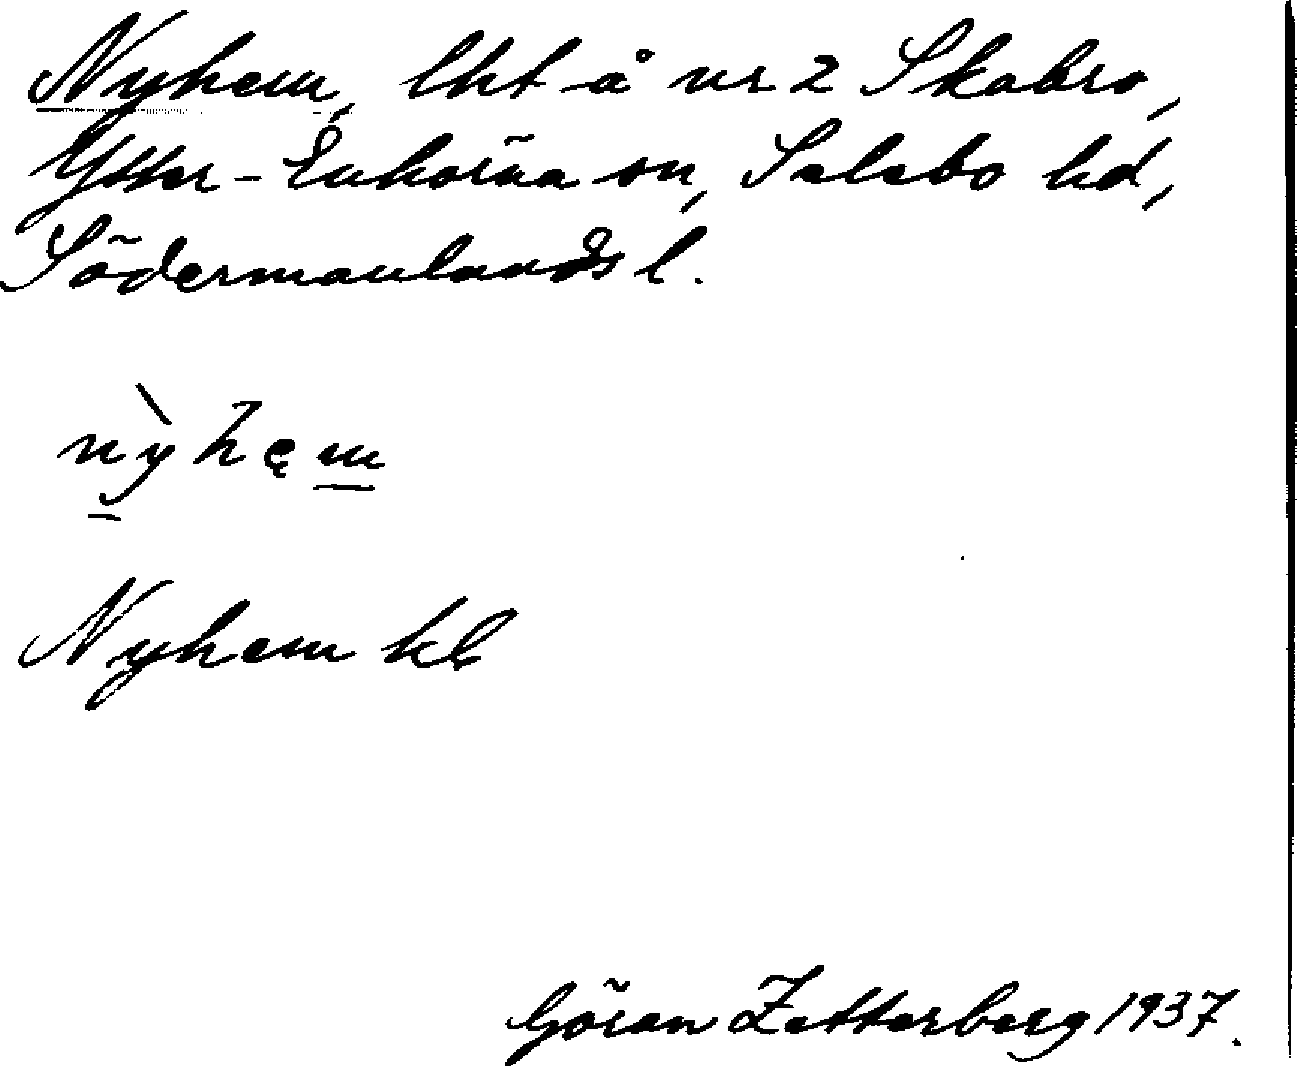 Nyhem, lht å nr 2 Skabro,
Ytter-Enhörna sn, Selebo hd,
Södermanlands l.
nỳhęm
Nyhem kb
Göran Zetterberg 1937.